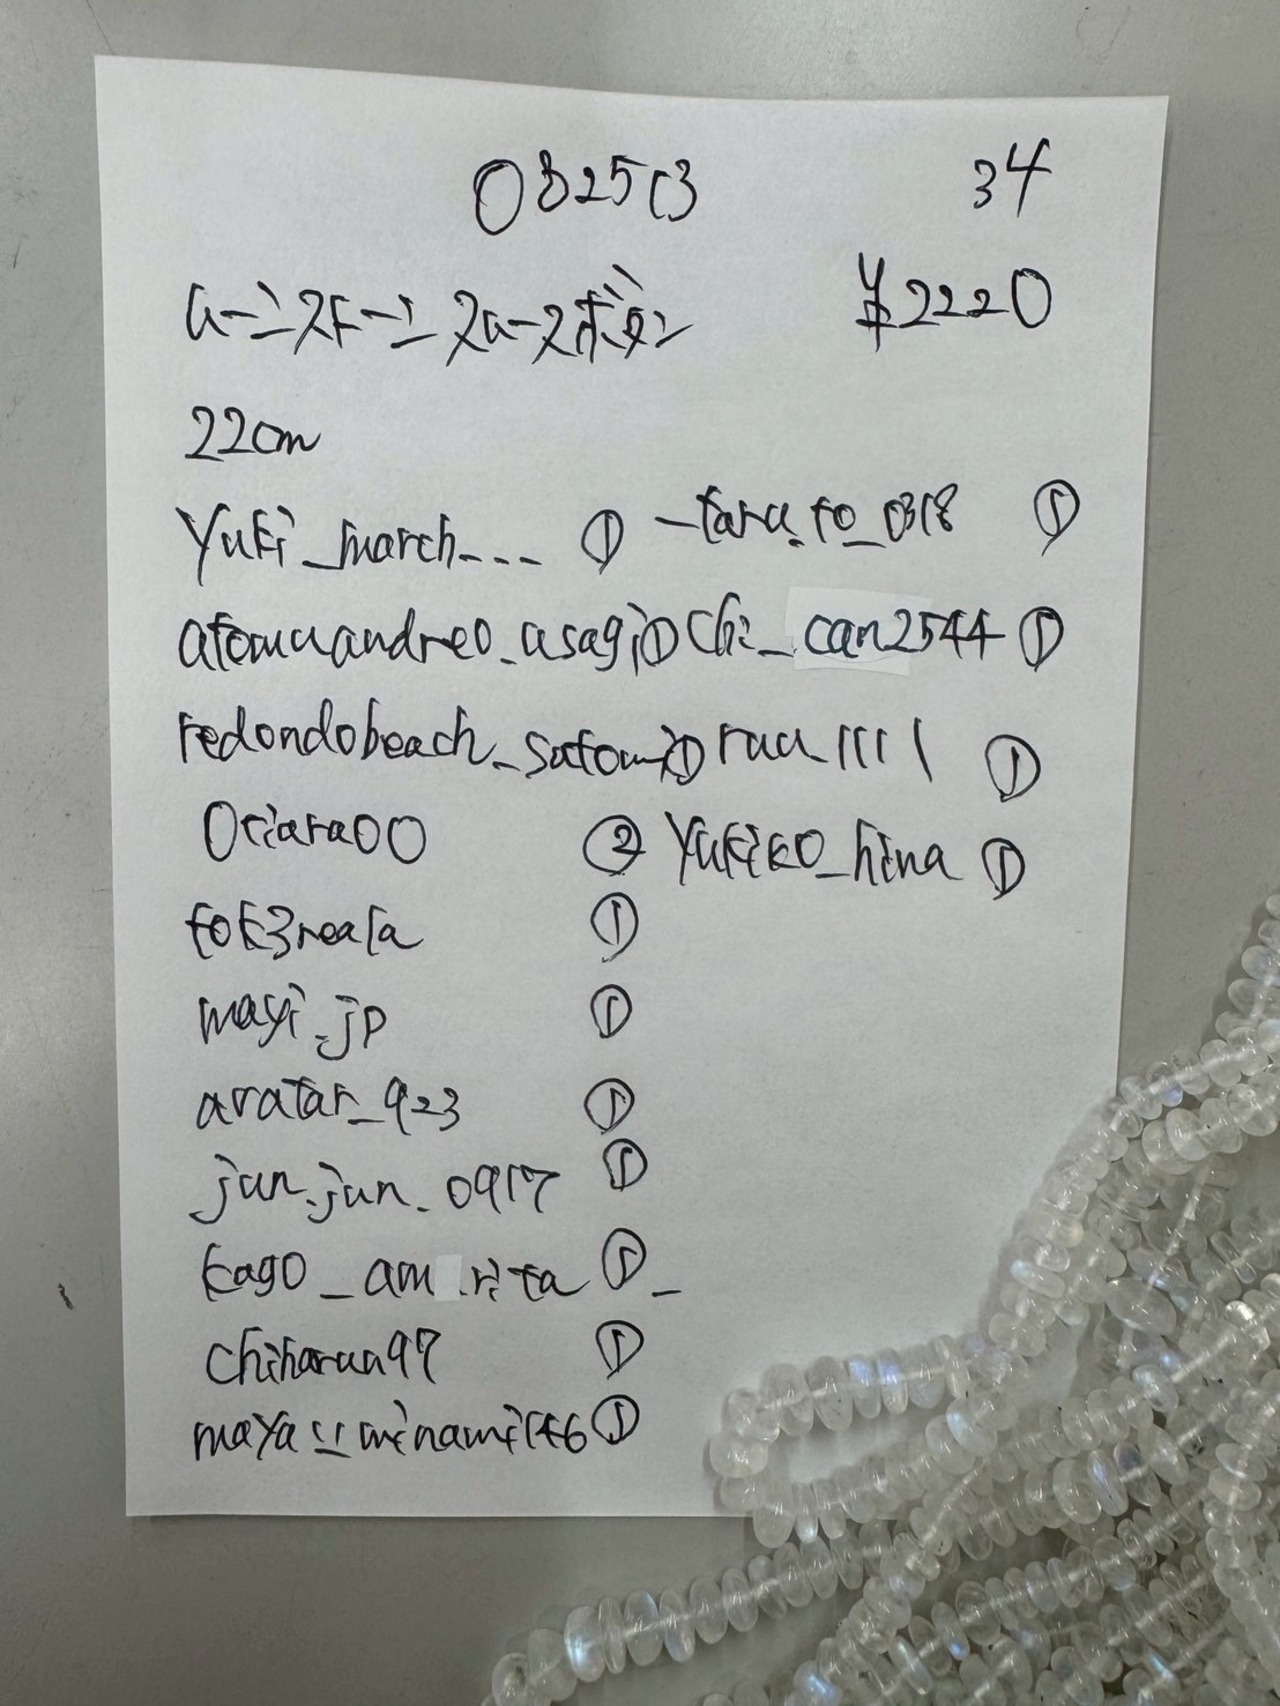 082503 34
ムーンストーン ¥2220
22cm
Yuki_march--- ① _taru.to_0318 ①
atomuandreo_asagi① chi_can2544 ①
redondobeach_satomi① ruu_1111 ①
0ciara00 ② Yukiko_hina ①
tok3reala ①
mayi.jp ①
avatar_923 ①
jun.jun.0917 ①
kago_amrita ①_
chiharun97 ①
maya__minami146 ①